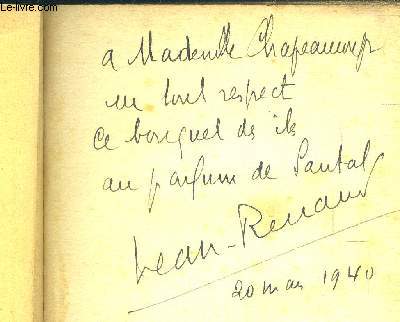 Le-livre.com
a Mademelle Chapeaurouge
en tout respect
ce bouquet des îles
au parfum de Santal
Jean-Renaud
20 mai 1940